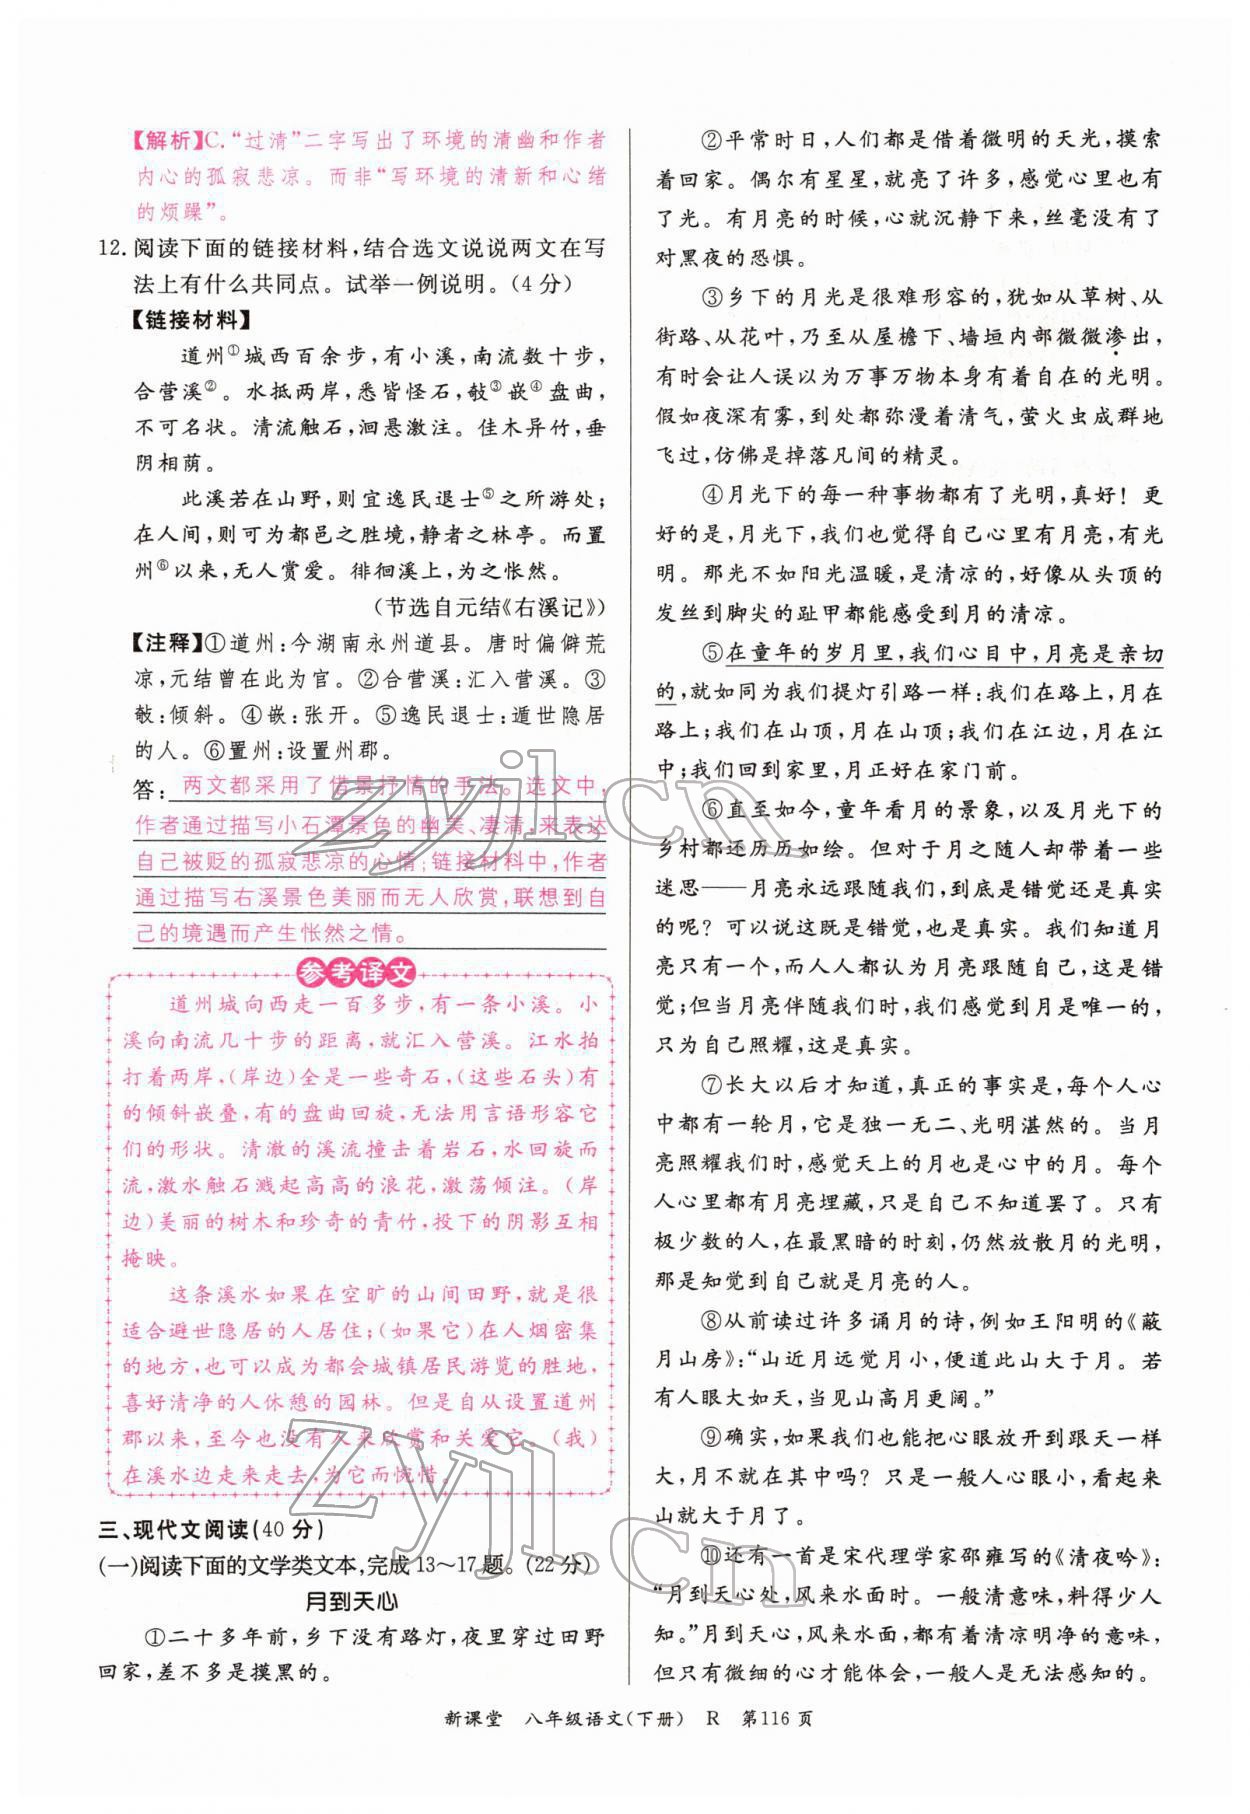 【解析】C.“过清”二字写出了环境的清幽和作者
内心的孤寂悲凉。而非“写环境的清新和心绪
的烦躁”。
12.阅读下面的链接材料,结合选文说说两文在写
法上有什么共同点。试举一例说明。(4分)
【链接材料】
道州①城西百余步,有小溪,南流数十步,
合营溪②。水抵两岸,悉皆怪石,攲③嵌④盘曲,
不可名状。清流触石,洄悬激注。佳木异竹,垂
阴相荫。
此溪若在山野,则宜逸民退士⑤之所游处;
在人间,则可为都邑之胜境,静者之林亭。而置
州⑥以来,无人赏爱。徘徊溪上,为之怅然。
(节选自元结《右溪记》)
【注释】①道州:今湖南永州道县。唐时偏僻荒
凉,元结曾在此为官。②合营溪:汇入营溪。③
攲:倾斜。④嵌:张开。⑤逸民退士:遁世隐居
的人。⑥置州:设置州郡。
答:两文都采用了借景抒情的手法。选文中,
作者通过描写小石潭景色的幽美、凄清,来表达
自己被贬的孤寂悲凉的心情;链接材料中,作者
通过描写右溪景色美丽而无人欣赏,联想到自
己的境遇而产生怅然之情。
参考译文
道州城向西走一百多步,有一条小溪。小
溪向南流几十步的距离,就汇入营溪。江水拍
打着两岸,(岸边)全是一些奇石,(这些石头)有
的倾斜嵌叠,有的盘曲回旋,无法用言语形容它
们的形状。清澈的溪流撞击着岩石,水回旋而
流,激水触石溅起高高的浪花,激荡倾注。(岸
边)美丽的树木和珍奇的青竹,投下的阴影互相
掩映。
这条溪水如果在空旷的山间田野,就是很
适合避世隐居的人居住;(如果它)在人烟密集
的地方,也可以成为都会城镇居民游览的胜地,
喜好清净的人休憩的园林。但是自从设置道州
郡以来,至今也没有人来欣赏和关爱它,(我)
在溪水边走来走去,为它而惋惜。
三、现代文阅读(40分)
(一)阅读下面的文学类文本,完成13~17题。(22分)
月到天心
①二十多年前,乡下没有路灯,夜里穿过田野
回家,差不多是摸黑的。
②平常时日,人们都是借着微明的天光,摸索
着回家。偶尔有星星,就亮了许多,感觉心里也有
了光。有月亮的时候,心就沉静下来,丝毫没有了
对黑夜的恐惧。
③乡下的月光是很难形容的,犹如从草树、从
街路、从花叶,乃至从屋檐下、墙垣内部微微渗出,
有时会让人误以为万事万物本身有着自在的光明。
假如夜深有雾,到处都弥漫着清气,萤火虫成群地
飞过,仿佛是掉落凡间的精灵。
④月光下的每一种事物都有了光明,真好！更
好的是,月光下,我们也觉得自己心里有月亮,有光
明。那光不如阳光温暖,是清凉的,好像从头顶的
发丝到脚尖的趾甲都能感受到月的清凉。
⑤在童年的岁月里,我们心目中,月亮是亲切
的,就如同为我们提灯引路一样:我们在路上,月在
路上;我们在山顶,月在山顶;我们在江边,月在江
中;我们回到家里,月正好在家门前。
⑥直至如今,童年看月的景象,以及月光下的
乡村都还历历如绘。但对于月之随人却带着一些
迷思——月亮永远跟随我们,到底是错觉还是真实
的呢？可以说这既是错觉,也是真实。我们知道月
亮只有一个,而人人都认为月亮跟随自己,这是错
觉;但当月亮伴随我们时,我们感觉到月是唯一的,
只为自己照耀,这是真实。
⑦长大以后才知道,真正的事实是,每个人心
中都有一轮月,它是独一无二、光明湛然的。当月
亮照耀我们时,感觉天上的月也是心中的月。每个
人心里都有月亮埋藏,只是自己不知道罢了。只有
极少数的人,在最黑暗的时刻,仍然放散月的光明,
那是知觉到自己就是月亮的人。
⑧从前读过许多诵月的诗,例如王阳明的《蔽
月山房》:“山近月远觉月小,便道此山大于月。若
有人眼大如天,当见山高月更阔。”
⑨确实,如果我们也能把心眼放开到跟天一样
大,月不就在其中吗？只是一般人心眼小,看起来
山就大于月了。
⑩还有一首是宋代理学家邵雍写的《清夜吟》:
“月到天心处,风来水面时。一般清意味,料得少人
知。”月到天心,风来水面,都有着清凉明净的意味,
但只有微细的心才能体会,一般人是无法感知的。
新课堂 八年级语文(下册) R 第116页
zyjl.cn
zyjl.cn